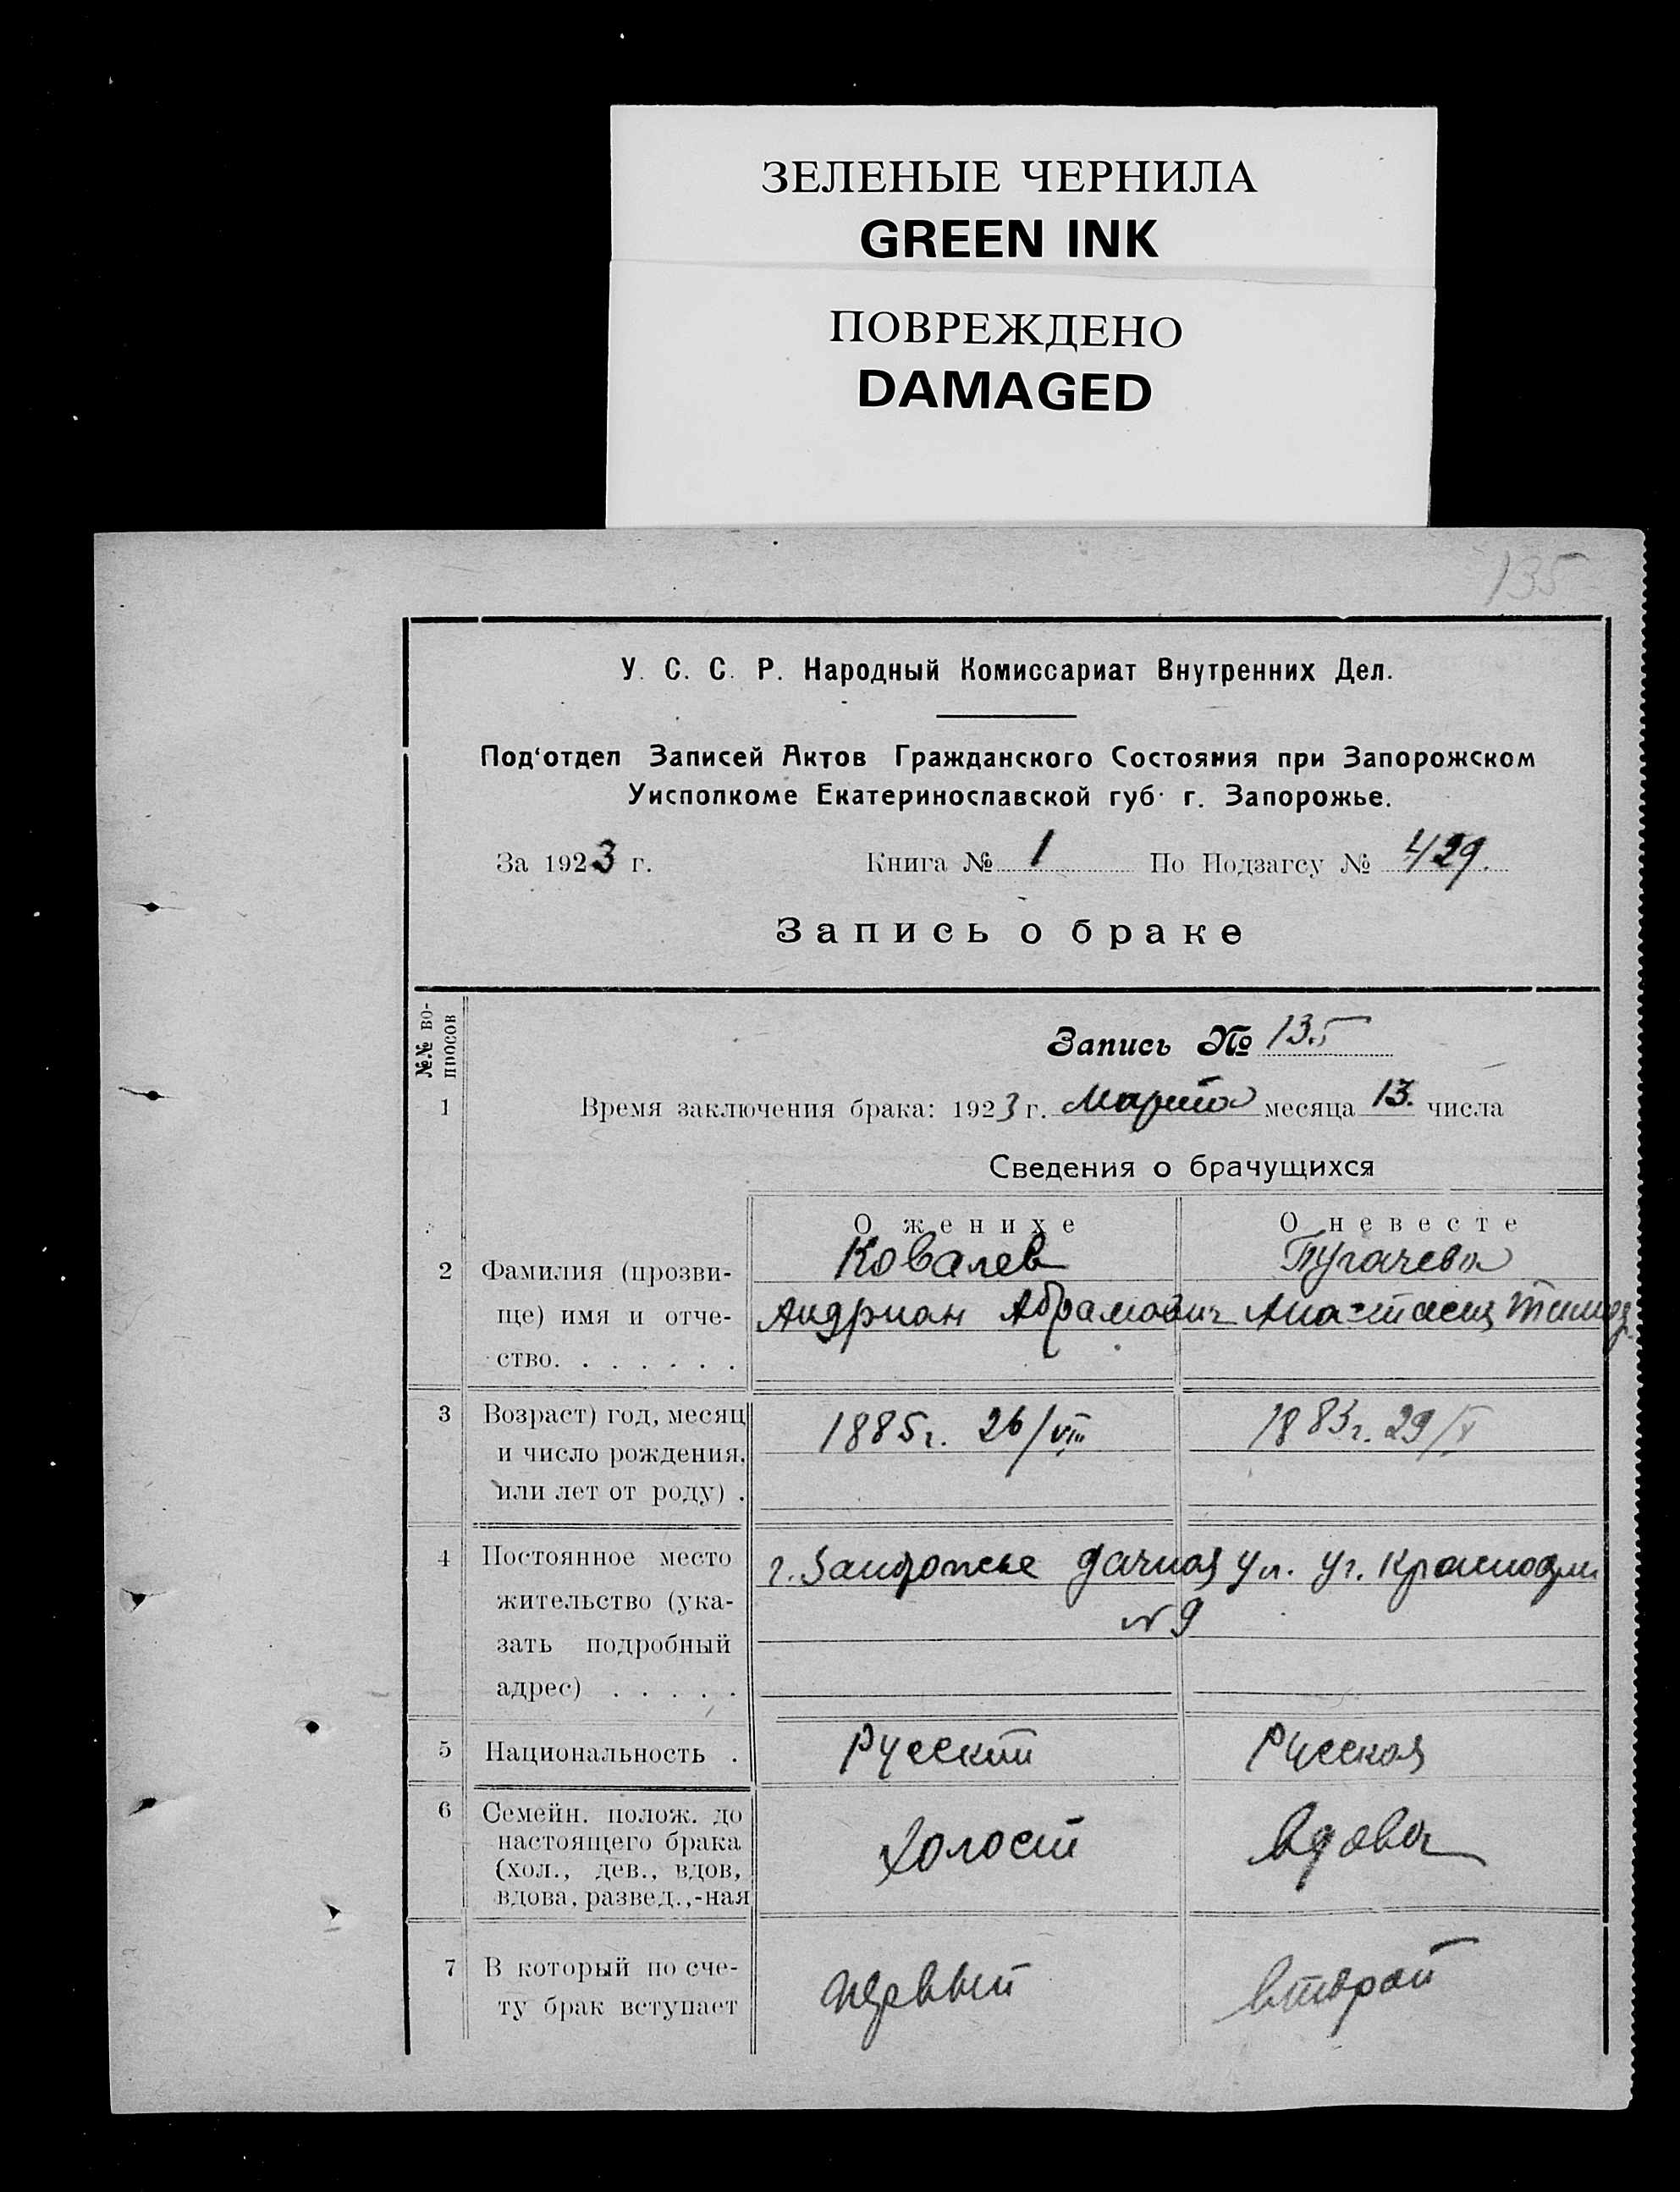 ЗЕЛЕНЫЕ ЧЕРНИЛА
GREEN INK
ПОВРЕЖДЕНО
DAMAGED
135
У. С. С. Р. Народный Комиссариат Внутренних Дел.
Под‘отдел Записей Актов Гражданского Состояния при Запорожском
Уисполкоме Екатеринославской губ. г. Запорожье.
За 1923 г. Книга № 1 По Подзагсу № 429.
Запись о браке
№№ во-
просов
Запись № 135
1 Время заключения брака: 1923 г. Марта месяца 13. числа
Сведения о брачущихся
О женихе О невесте
Ковалев
2 Фамилия (прозви-
ще) имя и отче- Андриан Абрамович Анастасия
ство. . . . . . .
3 Возраст) год, месяц 1885г. 26/VIII 1883г. 29/V
и число рождения,
или лет от роду) .
4 Постоянное место г. Запорожье Дачная ул. уг.
жительство (ука- № 9
зать подробный
адрес) . . . . .
5 Национальность . Русский Русская
6 Семейн. полож. до
настоящего брака Холост Вдова
(хол., дев., вдов,
вдова, развед.,-ная
7 В который по сче- первый второй
ту брак вступает